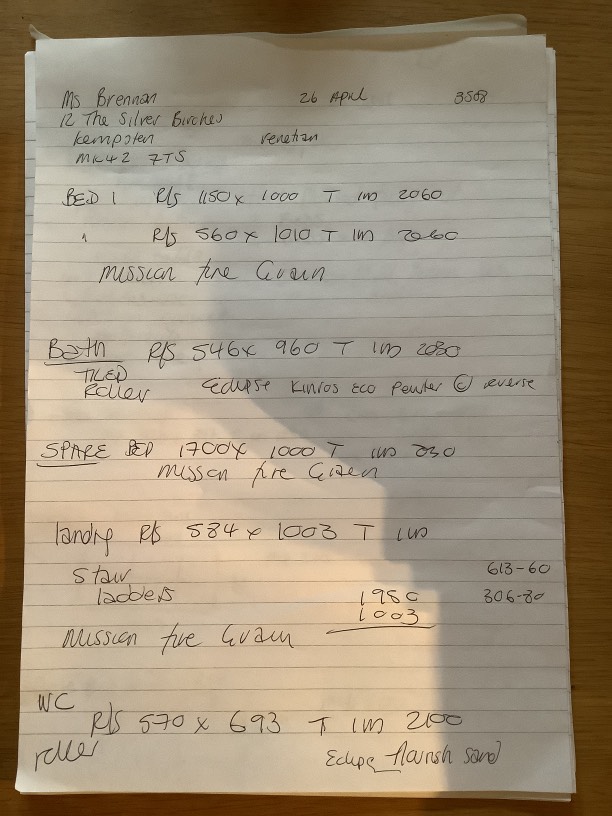 Ms Brennan 26 April 3508
12 The Silver Birches
Kempston venetian
MK42 7TS
BED 1 R/S 1150 x 1000 T IM 2060
" R/S 560 x 1010 T IM 2060
Mission fire Grain
Bath R/S 546 x 960 T IM 2080
TILED
Roller Eclipse Kinros Eco Pewter © reverse
SPARE BED 1700 x 1000 T IM 2030
Mission fire Grain
landing R/S 584 x 1003 T IM
Stair 613-60
ladders 1980 306-80
1003
Mission fire Grain
WC
R/S 570 x 693 T IM 2100
roller Eclipse flourish sand